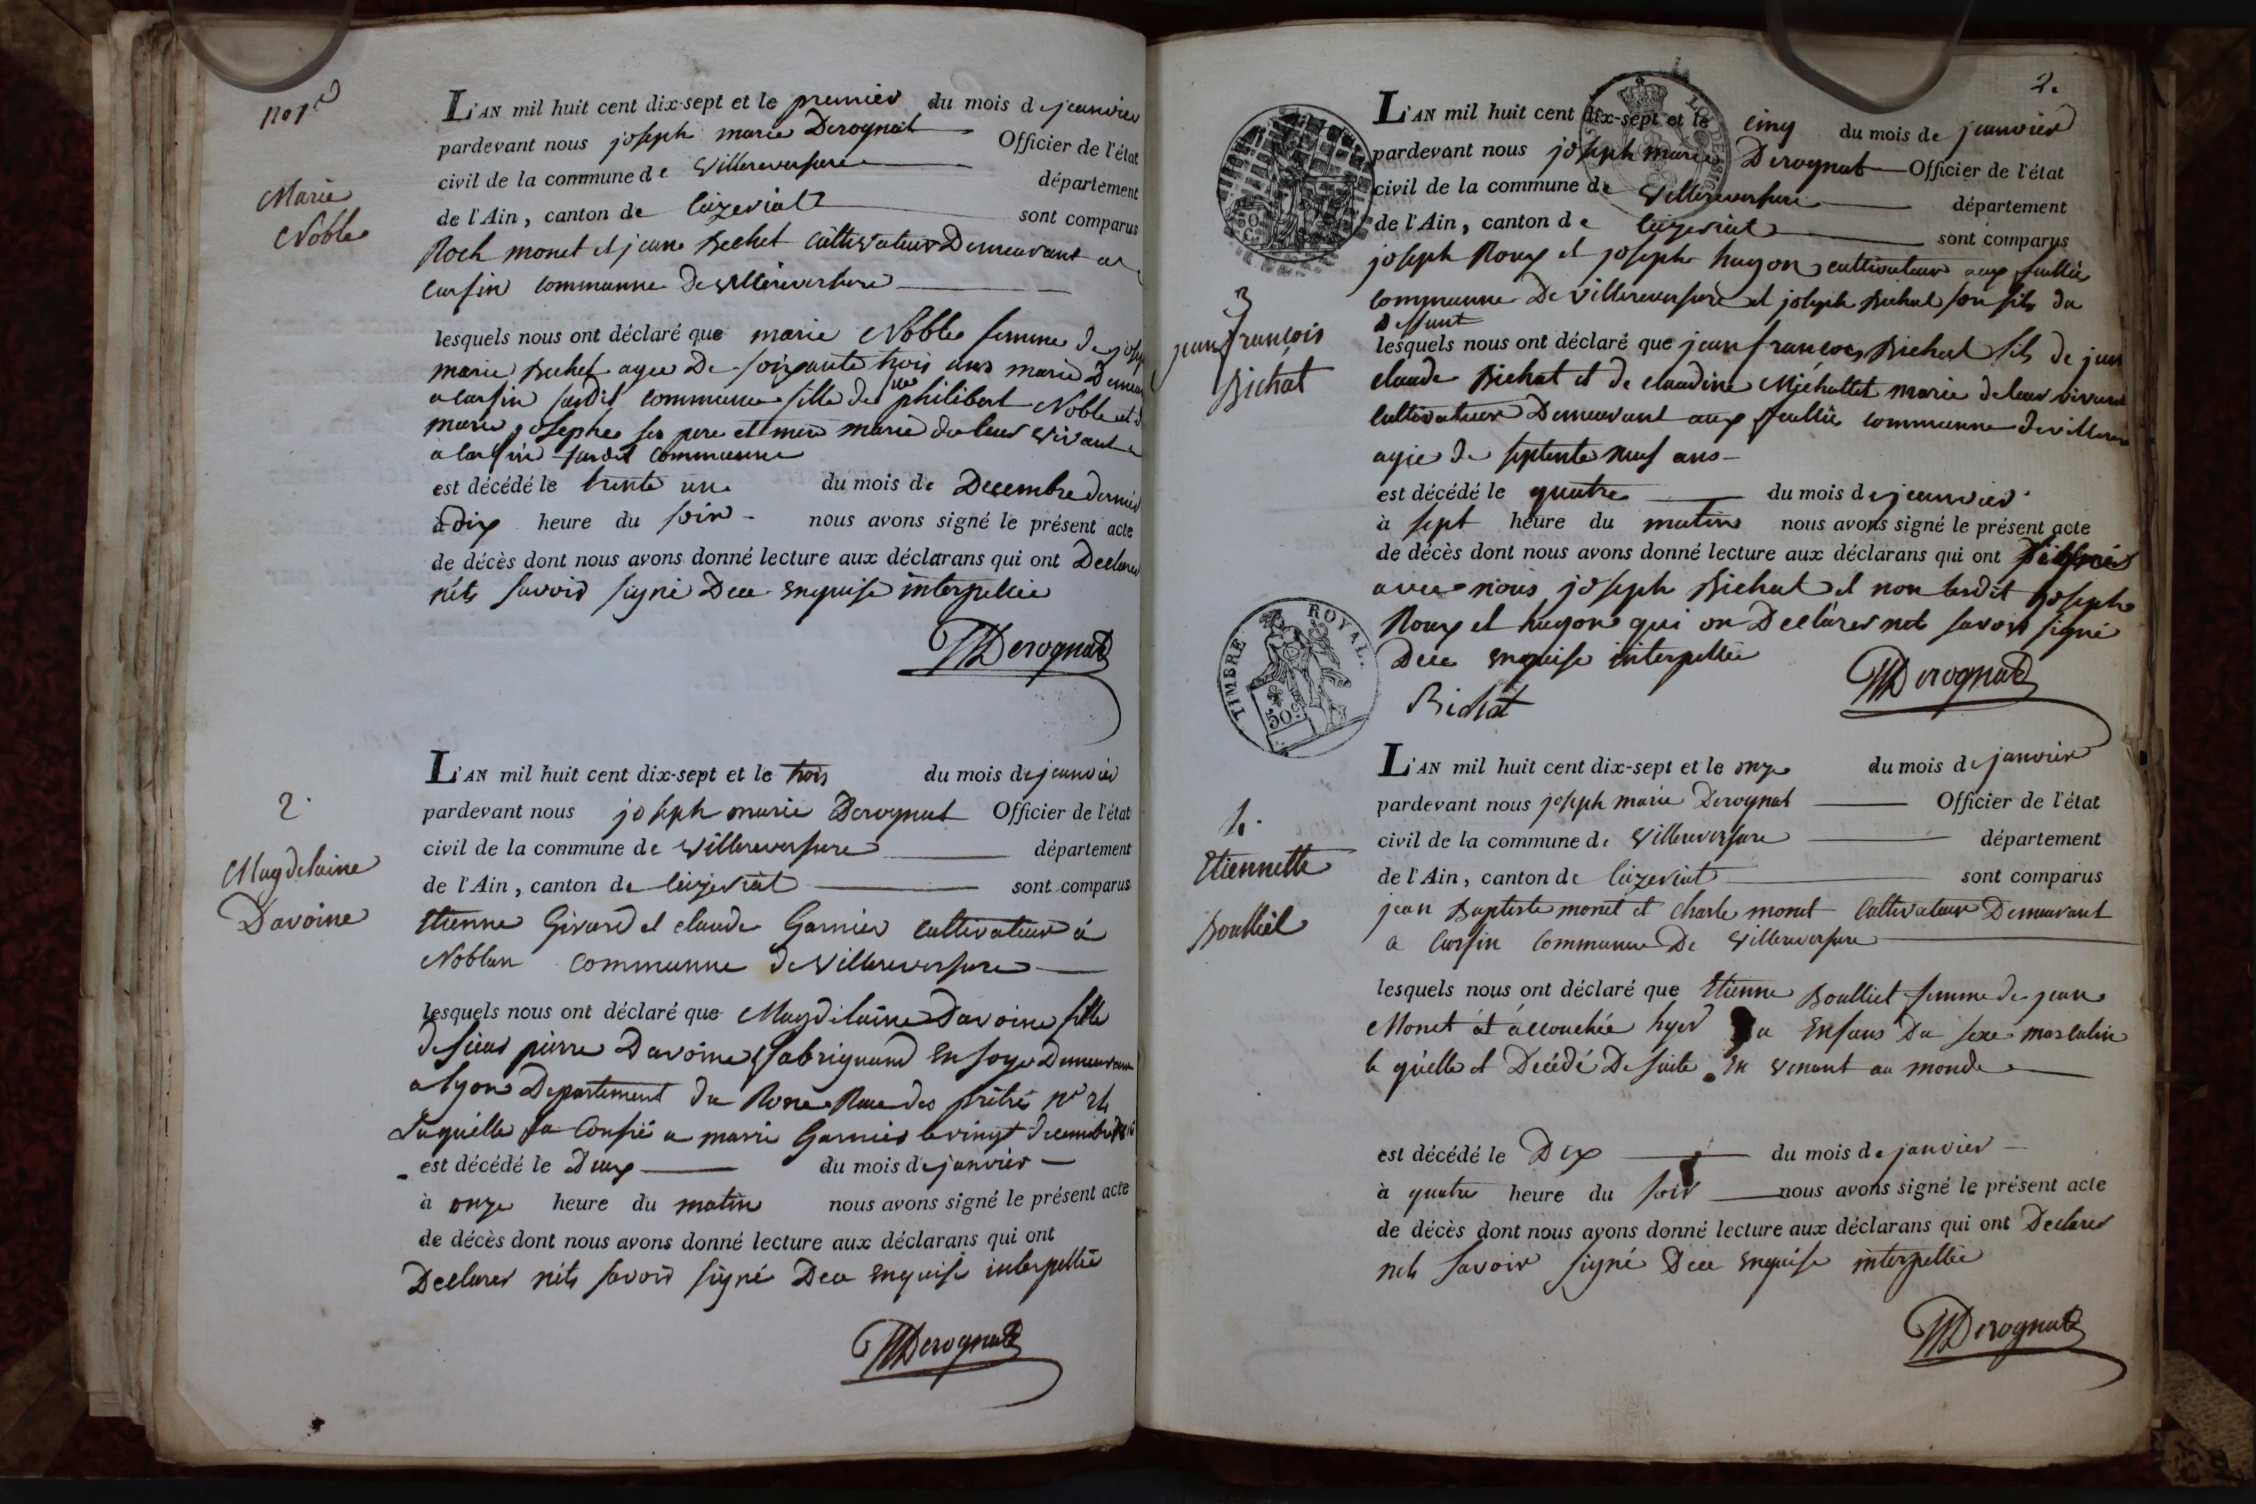 No 1er
Marie
Noble
L'AN mil huit cent dix-sept et le premier du mois de janvier
pardevant nous joseph marie Derognat Officier de l'état
civil de la commune de Villereversure département
de l'Ain, canton de Ceizeriat sont comparus
Roch monet et jean Bechet cultivateur Demeurant a
Cursin communne De Villereversure
lesquels nous ont déclaré que marie Noble femme de josep
marie Bechet agee De soixante trois ans marie Demeur
a Cursin susdit commune fille de philibert Noble et
marie josephe ses pere et mere marie du leur vivant
a Cursin susdit communne
est décédé le trente un du mois de Decembre dernier
à dix heure du soir nous avons signé le présent acte
de décès dont nous avons donné lecture aux déclarans qui ont Declarer
nêts savoir signé Dece enquise interpellée
Derognat
2.
Magdelaine
Davoine
L'AN mil huit cent dix-sept et le trois du mois de janvier
pardevant nous joseph marie Derognat Officier de l'état
civil de la commune de Villereversure département
de l'Ain, canton de Ceizeriat sont comparus
Etienne Girard et claude Garnier cultivateur à
Noblan communne de Villereversure
lesquels nous ont déclaré que Magdelaine Davoine fille
de sieur pierre Davoine fabriquand en soye Demeurant
a lyon Departement du Rone Rue des prêtre no 24
Laquelle a Confié a marie Garnier le vingt decembre 1816
est décédé le Deux du mois de janvier
à onze heure du matin nous avons signé le présent acte
de décès dont nous avons donné lecture aux déclarans qui ont
Declarer nêts savoir signé Dece enquise interpellée
Derognat
2.
3
jean françois
Bichat
L'AN mil huit cent dix-sept et le cinq du mois de janvier
pardevant nous joseph marie Derognat Officier de l'état
civil de la commune de Villereversure département
de l'Ain, canton de Ceizeriat sont comparus
joseph Roux et joseph hugon cultivateur aux feullée
communne De Villereversure et joseph Bichat son fils du
deffunt
lesquels nous ont déclaré que jean françois Bichat fils de jean
claude Bichat et de claudine Michallet marie de leur vivant
Cultivateur Demeurant aux feullée communne de villerever
agée de septente neuf ans
est décédé le quatre du mois de janvier
à sept heure du matin nous avons signé le présent acte
de décès dont nous avons donné lecture aux déclarans qui ont
avec nous joseph Bichat et non lesdit joseph
Roux et hugon qui on Declarer nets savoir signé
Dece enquise interpellée
Bichat
Derognat
TIMBRE ROYAL.
50 c.
4.
Etiennette
Boulliet
L'AN mil huit cent dix-sept et le onze du mois de janvier
pardevant nous joseph marie Derognat Officier de l'état
civil de la commune de Villereversure département
de l'Ain, canton de Ceizeriat sont comparus
jean Baptiste monet et Charle monet Cultivateur Demeurant
a Cursin Communne De Villereversure
lesquels nous ont déclaré que Etienne Boulliet femme de jean
Monet at accouchée hyer Enfans Du sexe masculin
le quelle et Décédé De suite En venant au monde
est décédé le Dix du mois de janvier
à quatre heure du soir nous avons signé le présent acte
de décès dont nous avons donné lecture aux déclarans qui ont Declarer
nets savoir signé Dece enquise interpellée
Derognat